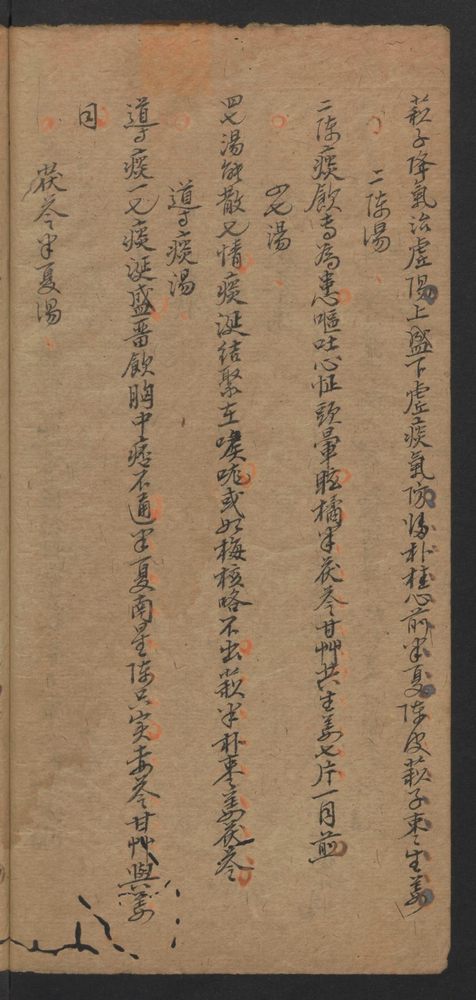 蘇子降氣治虛陽上盛下虛痰氣防歸朴桂心前半夏陳皮蘇子枣生姜
二陳湯
二陳痰飲専為患嘔吐心怔頭暈眩橘半茯苓甘艸共生姜七片一目煎
四七湯
四七湯能散七情痰涎結聚在喉咙或如梅核咯不出蘇半朴枣姜茯苓
導痰湯
導痰一七痰涎盛畱飲胸中痞不通半夏南星陳只实赤苓甘艸與姜
同
茯苓半夏湯